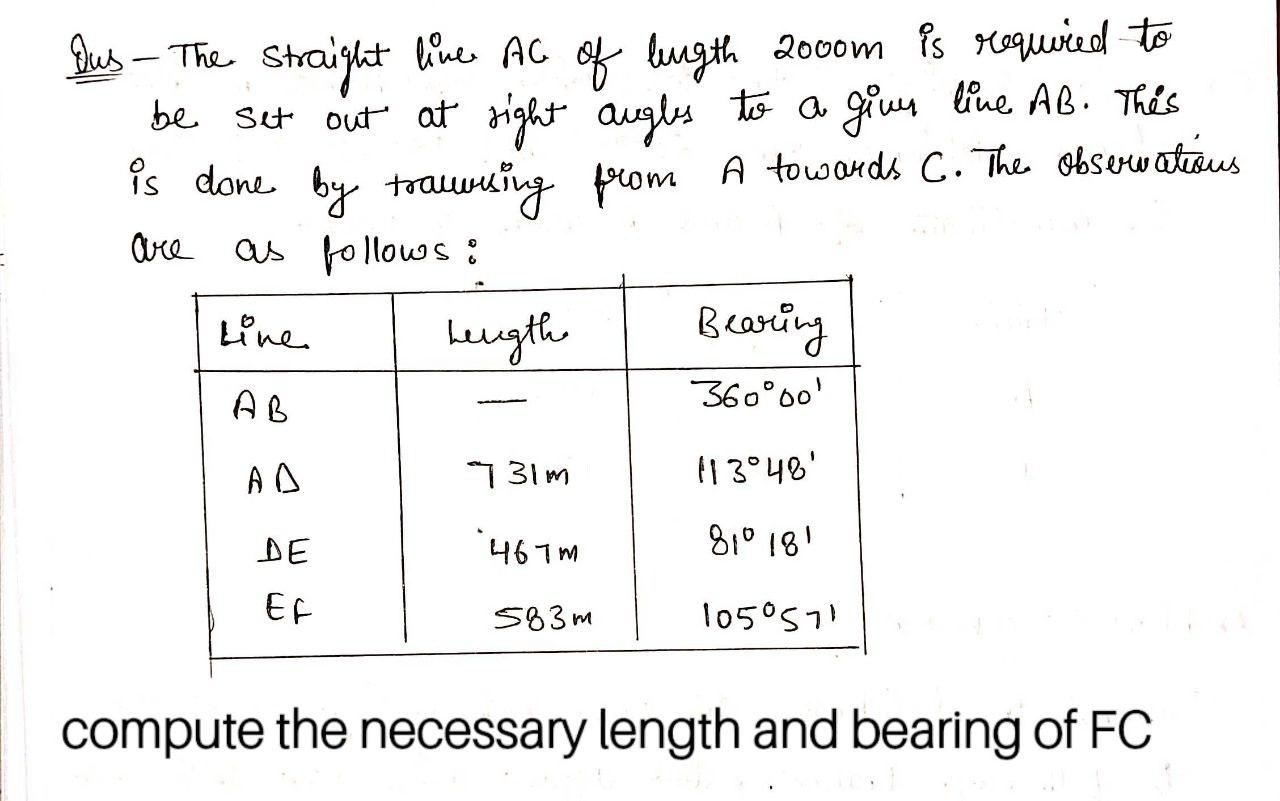 Qus - The straight line AC of length 2000m is required to
be set out at right angles to a given line AB. This
is done by traversing from A towards C. The observations
are as follows :
Line Length Bearing
AB — 360°00'
AD 731m 113°48'
DE 467m 81°18'
EF 583m 105°57'
compute the necessary length and bearing of FC